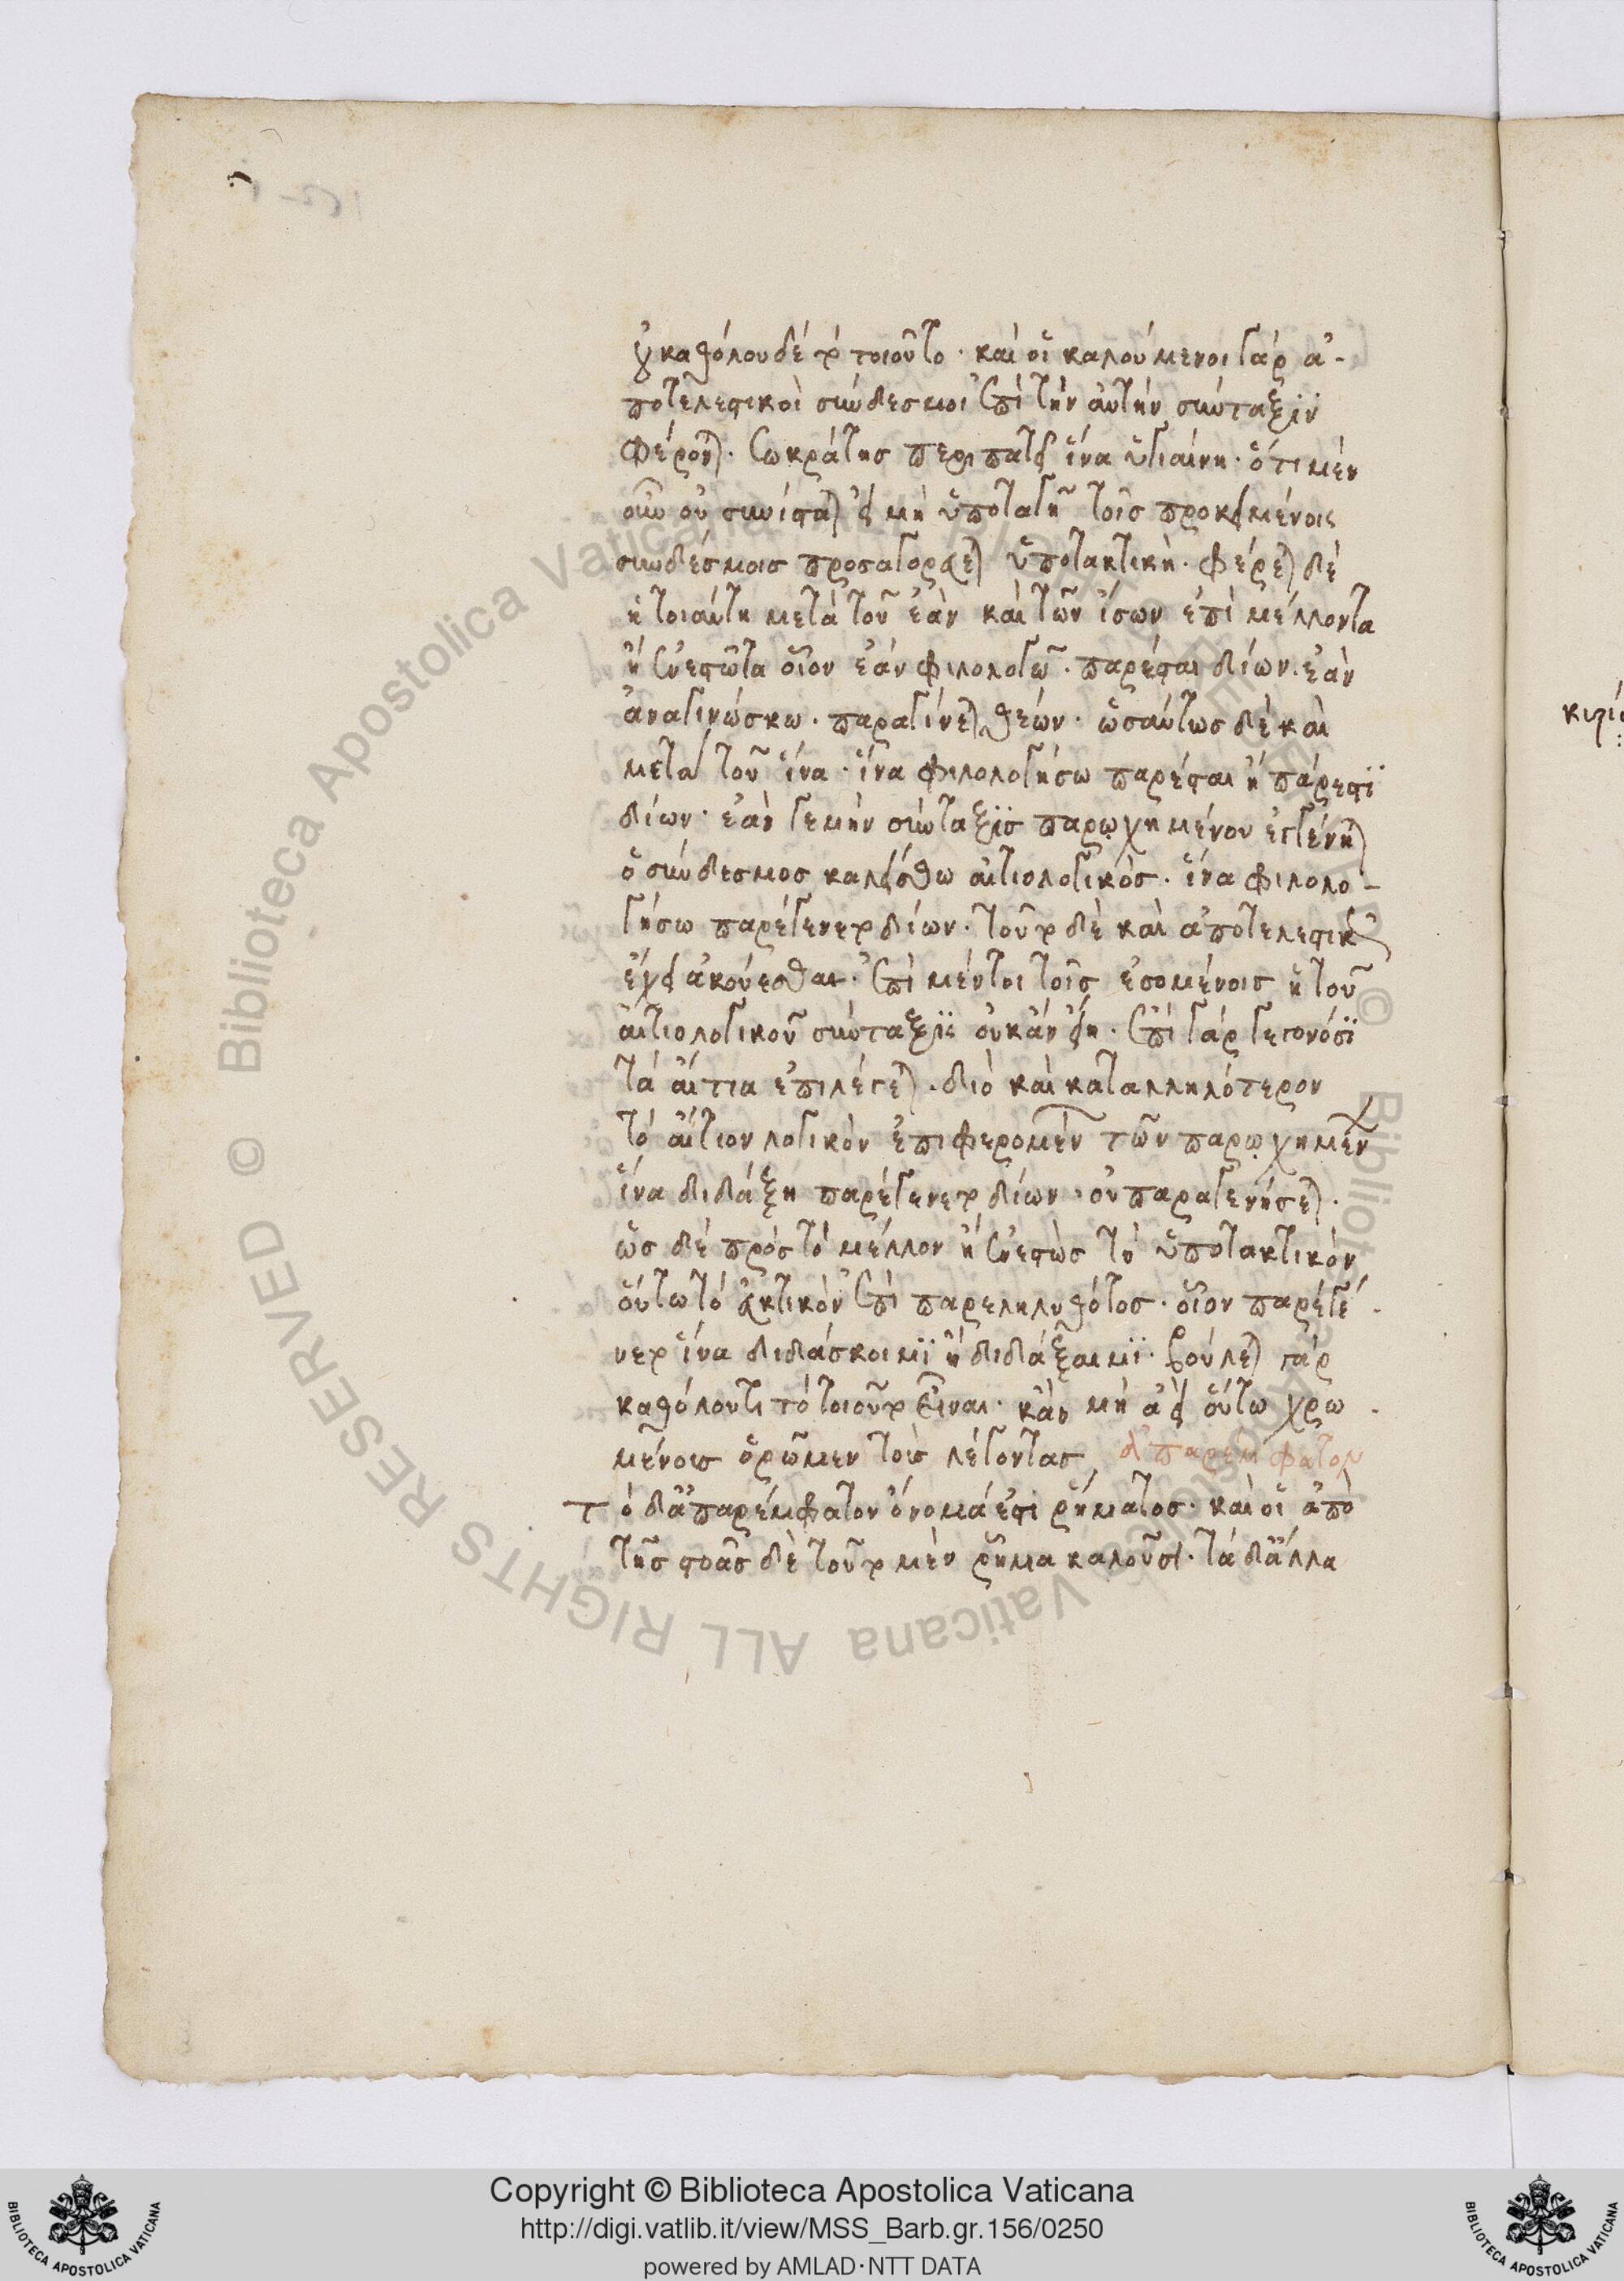 καθόλου δέ τὸ τοιοῦτο· καὶ οἱ καλούμενοι γάρ ἀ-
ποτελεστικοὶ σύνδεσμοι ἐπὶ τὴν αὐτὴν σύνταξιν
φέρονται. Σωκράτης περιπατεῖ ἵνα ὑγιαίνη· ὅτι μὲν
οὖν οὐ συνίσταται εἰ μὴ ὑποταγῆ τοῖς προκειμένοις
συνδέσμοις προσαγορεύεται ὑποτακτικὴ. φέρεται δὲ
ἡ τοιαύτη μετὰ τοῦ ἐὰν καὶ τῶν ἴσων ἐπὶ μέλλοντα
ἢ ἐνεστῶτα οἷον ἐάν φιλολογῶ· παρέσται δίων. ἐὰν
ἀναγινώσκω· παραγίνεται θέων· ὡσαύτως δὲ καὶ
μετὰ τοῦ ἵνα· ἵνα φιλολογήσω παρέσται ἢ πάρεστϊ
δίων· ἐὰν γε μὴν σύνταξϊς παρῳχημένου ἐγγένηται
ὁ σύνδεσμος καλείσθω αἰτιολογικός. ἵνα φιλολο-
γήσω παρέγενετο δίων. τοῦτο δὲ καὶ ἀποτελεστικῶς
ἔχει ἀκούεσθαι. ἐπὶ μέντοι τοῖς ἐσομένοις ἡ τοῦ
αἰτιολογικοῦ σύνταξϊς οὐκ ἂν εἴη. ἐπὶ γάρ γεγονόσϊ
τὰ αἴτια ἐπιλέγεται. διὸ καὶ καταλληλότερον
τὸ αἴτιον λογικὸν ἐπιφερομέν τῶν παρῳχημέν
ἵνα διδάξη παρέγενετο δίων· οὐ παραγενήσεται.
ὡς δέ πρὸς τὸ μέλλον ἢ ἐνεστὼς τὸ ὑποτακτικὸν
οὕτω τὸ εὐκτικὸν ἐπὶ παρεληλυθότος. οἷον παρέγέ-
νετο ἵνα διδάσκοιμϊ ἢ διδάξαιμϊ. βούλεται γὰρ
καθόλου τι τὸ τοιοῦτο εἶναι. κἂν μὴ ἀεὶ οὕτω χρω-
μένους ὁρῶμεν τοὺς λέγοντας ἀπαρέμφατον
Τὸ δ᾽ ἀπαρέμφατον ὄνομά ἐστι ῥήματος. καὶ οἱ ἀπὸ
τῆς στοᾶς δὲ τοῦτο μὲν ῥῆμα καλοῦσι. τὰ δ᾽ ἄλλα
Copyright © Biblioteca Apostolica Vaticana
http://digi.vatlib.it/view/MSS_Barb.gr.156/0250
powered by AMLAD·NTT DATA
© Biblioteca Apostolica Vaticana ALL RIGHTS RESERVED
BIBLIOTECA APOSTOLICA VATICANA
BIBLIOTECA APOSTOLICA VATICANA